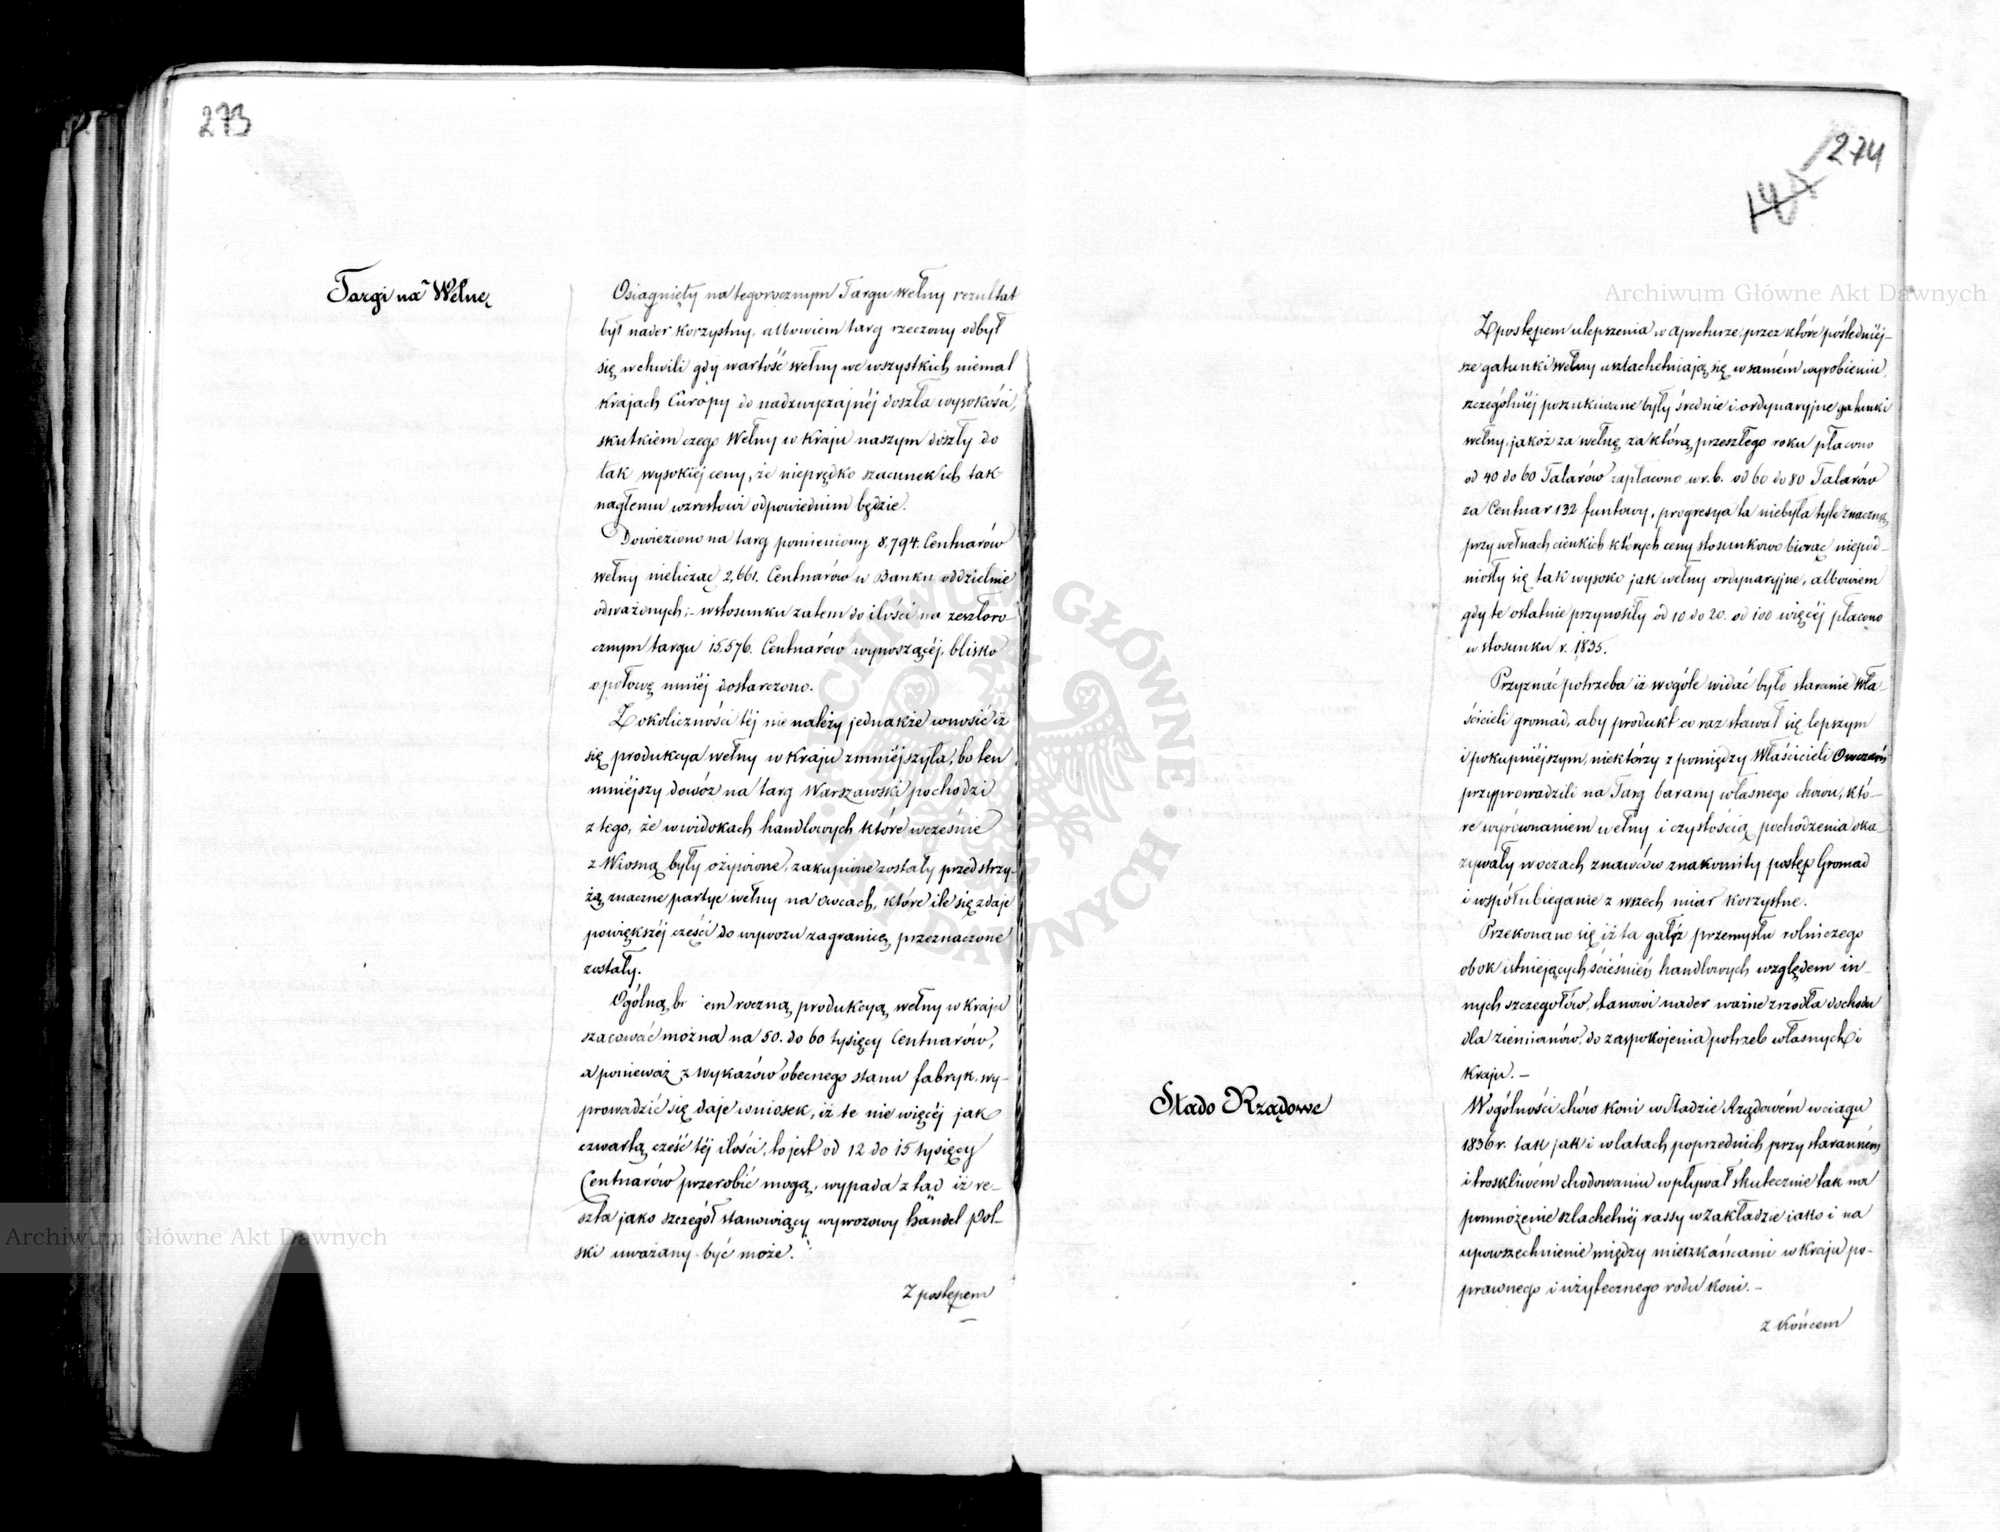 273
Targi na Wełnę
Osiągnięty na tegorocznym Targu wełny rezultat
był nader korzystny, albowiem targ rzeczony odbył
się w chwili gdy wartość wełny we wszystkich niemal
Krajach Europy do nadzwyczajnéj doszła wysokości,
skutkiem czego Wełny w Kraju naszym doszły do
tak wysokiéj ceny, że nieprędko szacunek ich tak
nagłemu wzrostowi odpowiednim będzie.
Dowieziono na targ pomieniony 8,794. Centnarów
wełny nielicząc 2,661. Centnarów w Banku oddzielnie
odważonych; – w stosunku zatem do ilości na zeszłoro-
cznym targu 15,576. Centnarów wynoszącéj, blisko
o połowę mniéj dostarczono.
Z okoliczności téj nie należy jednakże wnosić iż
się produkcya wełny w Kraju zmniéjszyła, bo ten
mniejszy dowóz na targ Warszawski pochodzi
z tego, że w widokach handlowych które wcześnie
z Wiosną były ożywione, zakupione zostały przed strzy-
żą znaczne partye wełny na owcach, które ile się zdaje
powiększéj części do wywozu zagranicę przeznaczone
zostały.
Ogólną br em roczną produkcyą wełny w Kraju
szacować można na 50. do 60 tysięcy Centnarów,
a ponieważ z wykazów obecnego stanu fabryk, wy-
prowadzić się daje wniosek, iż te nie więcéj jak
czwartą cześć téj ilości, to jest od 12 do 15 tysięcy
Centnarów przerobić mogą, wypada z tąd iż re-
szta jako szczegół stanowiący wywozowy handel Pol-
ski uważany być może.
Z postępem
274
Z postępem ulepszenia w apreturze, przez które pośledniéj-
sze gatunki wełny uszlachetniają się w samém wyrobieniu,
szczególniéj poszukiwane były średnie i ordynaryjne gatunki
wełny, jakoż za wełnę za którą przeszłego roku płacono
od 40 do 60 Talarów zapłacono w r. b. od 60 do 80 Talarów
za Centnar 132 funtowy, progresya ta niebyła tyle znaczną
przy wełnach cienkich których ceny stosunkowo biorąc niepod-
niosły się tak wysoko jak wełny ordynaryjne, albowiem
gdy te ostatnie przynosiły od 10 do 20. od 100 więcéj płacono
w stosunku r. 1835.
Przyznać potrzeba iż wogóle widać było staranie Wła-
ścicieli gromad, aby produkt co raz stawał się lepszym
i pokupniéjszym, niektórzy z pomiędzy Właścicieli Owczarń
przyprowadzili na Targ barany własnego chowu, któ-
re wyrównaniem wełny i czystością pochodzenia oka-
zywały w oczach znawców znakomity postęp Gromad
i współubieganie z wszech miar korzystne.
Przekonano się iż ta gałęź przemysłu rolniczego
obok istniejących ścieśnień handlowych względem in-
nych szczegółów, stanowi nader ważne zrzodła dochodu
dla ziemianów, do zaspokojenia potrzeb własnych i
Kraju. –
Stado Rządowe
Wogólności chów koni w Stadzie Rządowém w ciągu
1836 r. tak jak i w latach poprzednich przy staranném
i troskliwém chodowaniu wpływał skutecznie tak na
pomnożenie szlachetnéj rassy w zakładzie jako i na
upowszechnienie między mieszkańcami w Kraju po-
prawnego i użytecznego rodu koni. –
z Końcem
Archiwum Główne Akt Dawnych
Archiwum Główne Akt Dawnych
ARCHIWUM GŁÓWNE AKT DAWNYCH